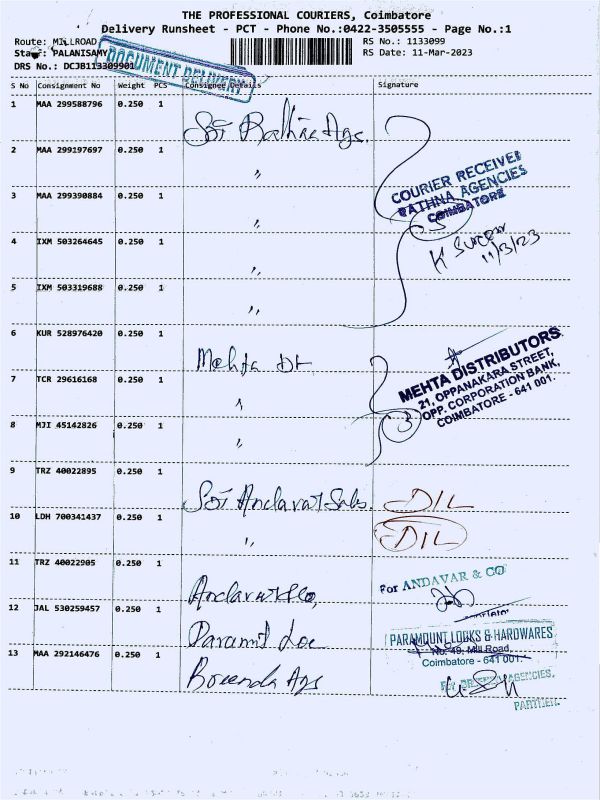 THE PROFESSIONAL COURIERS, Coimbatore
Delivery Runsheet - PCT - Phone No.:0422-3505555 - Page No.:1
Route: MILLROAD
RS No.: 1133099
Staff: PALANISAMY
RS Date: 11-Mar-2023
DRS No.: DCJB113309901
DOCUMENT DELIVERY
S No Consignment No Weight PCS Consignee Details Signature
1 MAA 299588796 0.250 1 Sri Rathna Ags.
2 MAA 299197697 0.250 1 "
COURIER RECEIVED
RATHNA AGENCIES
COIMBATORE
3 MAA 299390884 0.250 1 "
5
11/3/23
4 IXM 503264645 0.250 1 "
5 IXM 503319688 0.250 1 "
6 KUR 528976420 0.250 1 Mehta
MEHTA DISTRIBUTORS
21, OPPANAKARA STREET,
OPP. CORPORATION BANK,
COIMBATORE - 641 001.
7 TCR 29616168 0.250 1 "
3
8 MJI 45142826 0.250 1 "
9 TRZ 40022895 0.250 1 Sri Andavar Sales. DIL
10 LDH 700341437 0.250 1 " DIL
11 TRZ 40022905 0.250 1 Andavar & Co,
For ANDAVAR & CO
12 JAL 530259457 0.250 1
PARAMOUNT LOCKS & HARDWARES
No. 49, Mill Road,
Coimbatore - 641 001.
13 MAA 292146476 0.250 1
AGENCIES,
PARTNER.